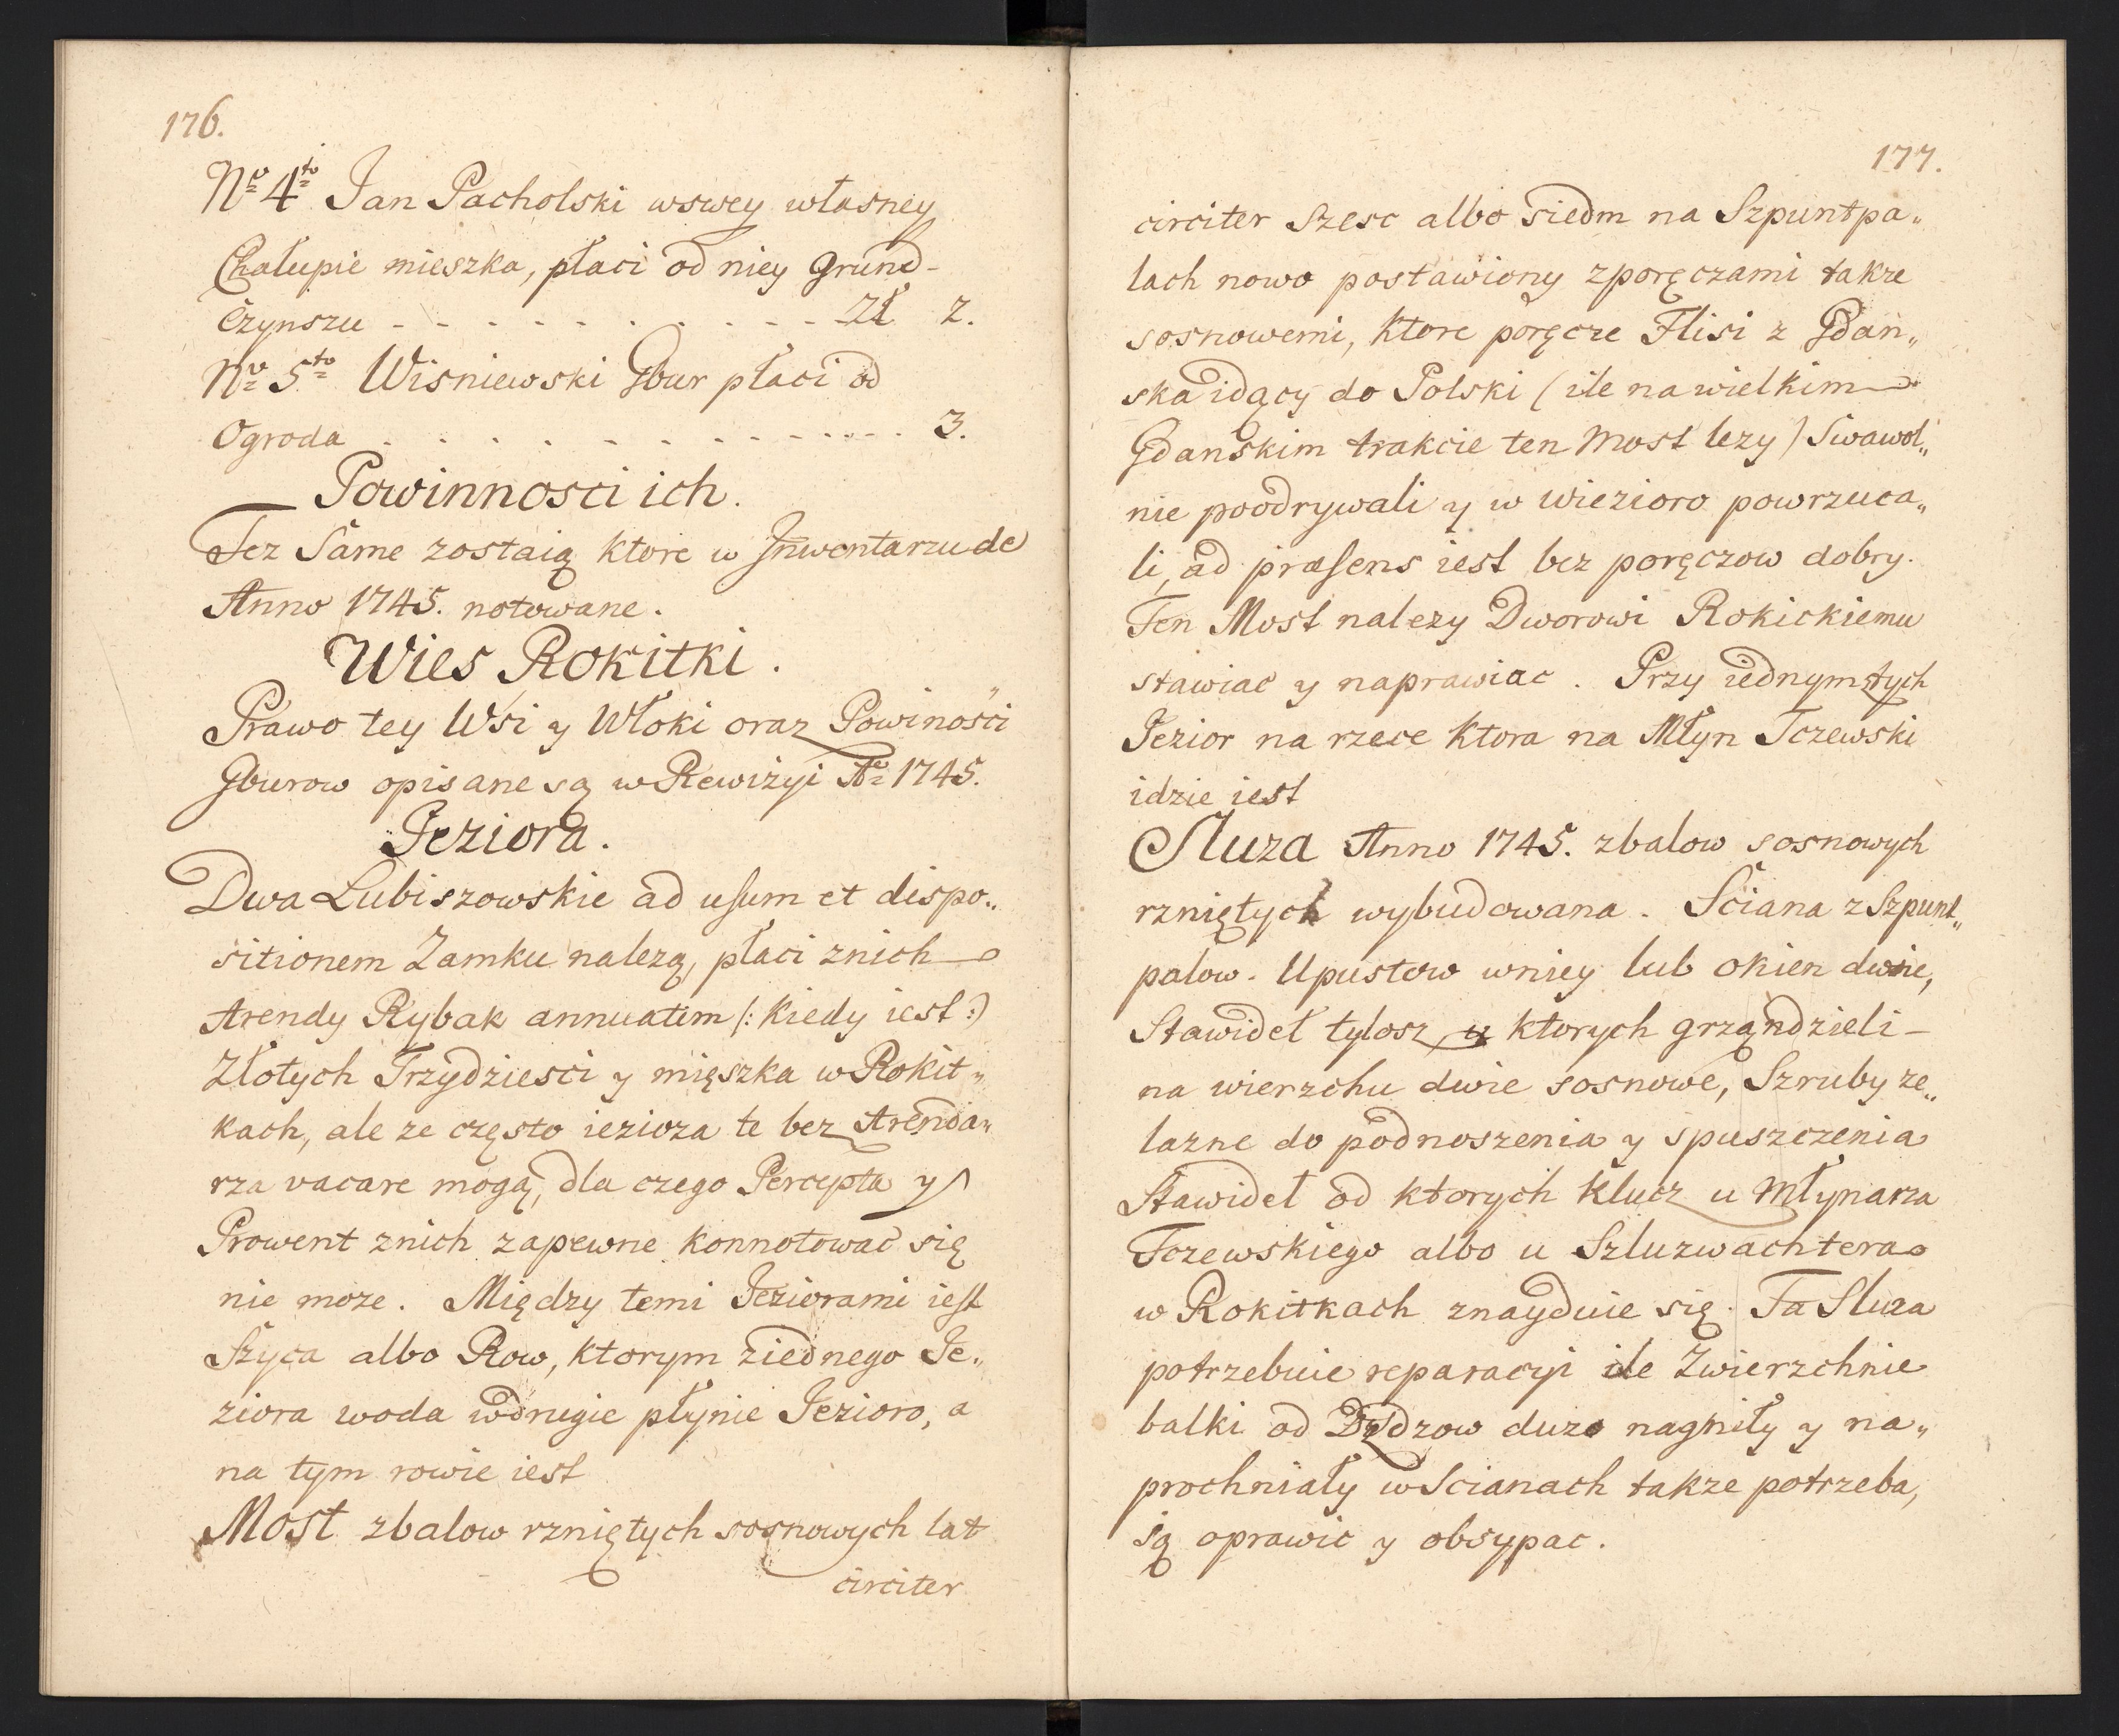 176.
No 4to Jan Pacholski wswey własney
Chałupie mieszka, płaci od niey Grund-
Czynszu - - - - - - - - - - - Zł 2.
No 5to Wisniewski Gbur płaci od
Ogroda - - - - - - - - - - - - 3.
Powinnosci ich.
Tez Same zostaią ktore w Inwentarzu de
Anno 1745. notowane.
Wies Rokitki.
Prawo tey Wsi y Włoki oraz Powinosci
Gburow opisane są w Rewizyi Ao 1745.
Jeziora.
Dwa Lubiszowskie ad usum et dispo„
sitionem Zamku nalezą, płaci znich
Arendy Rybak annuatim (: kiedy iest :)
Złotych Trzydziesci y mięszka w Rokit„
kach, ale ze często ieziora te bez Arenda„
rza vacare mogą, dla czego Percepta y
Prowent znich zapewne konnotować się
nie moze. Między temi Jeziorami iest
Szyca albo Row, ktorym ziednego Je„
ziora woda wdrugie płynie Jezioro, a
na tym rowie iest
Most zbalow rzniętych sosnowych lat
circiter
177.
circiter Szesc albo siedm na Szpuntpa„
lach nowo postawiony zporęczami takze
sosnowemi, ktore poręcze Flisi z Gdan„
ska idący do Polski (ile na wielkim
Gdanskim trakcie ten Most lezy) Swawol„
nie poodrywali y w wiezioro powrzuca„
li, ad præsens iest bez poręczow dobry.
Ten Most nalezy Dworowi Rokickiemu
stawiac y naprawiac. Przy iednym ztych
Jezior na rzece ktora na Młyn Tczewski
idzie iest
Sluza Anno 1745. zbalow sosnowych
rzniętych wybudowana. Sciana z Szpunt„
palow. Upustow wniey lub okien dwie,
Stawideł tylosz, u ktorych grządzieli
na wierzchu dwie sosnowe, Szruby ze„
lazne do podnoszenia y spuszczenia
Stawideł od ktorych klucz u Młynarza
Tczewskiego albo u Szluzwachtera
w Rokitkach znayduie się. Ta Sluza
potrzebuie reparacyi ile Zwierzchnie
balki od Dydzow duzo nagniły y na„
prochniały w Scianach takze potrzeba,
ią oprawic y obsypac.